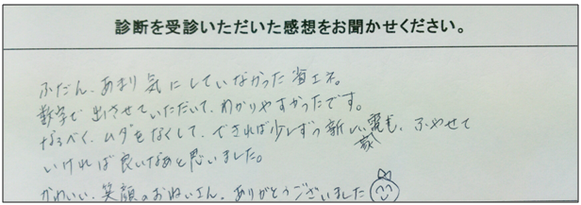 診断を受診いただいた感想をお聞かせください。
ふだん、あまり気にしていなかった省エネ。
数字で出させていただいて、わかりやすかったです。
なるべく、ムダをなくして、できれば少しずつ新しい家電も、ふやせて
いければ良いなあと思いました。
かわいい、笑顔のおねいさん、ありがとうございました